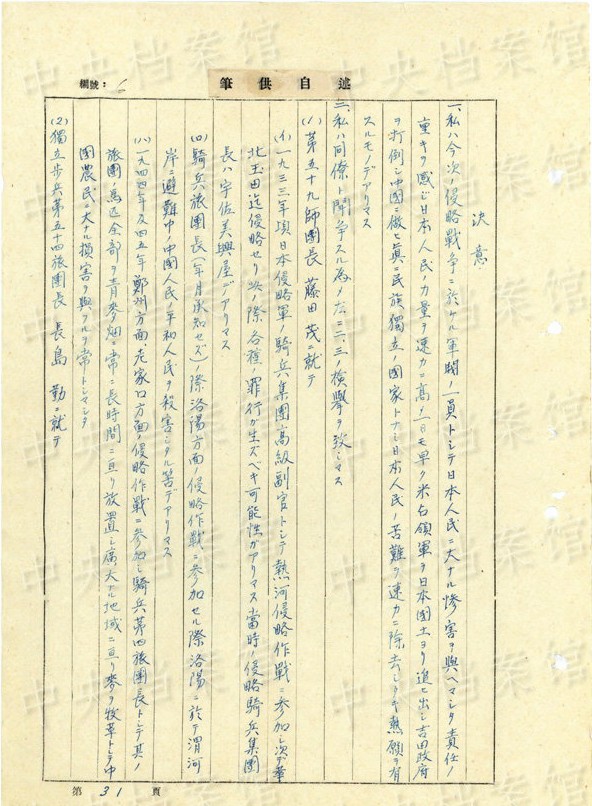 編號：6
筆供自述
決意
一、私ハ今次ノ侵略戦争ニ於ケル軍閥ノ一員トシテ日本人民ニ大ナル惨害ヲ與ヘマシタ責任ノ
重キヲ感ジ日本人民ノ力量ヲ速カニ高メ一日モ早ク米占領軍ヲ日本國土ヨリ追ヒ出シ吉田政府
ヲ打倒シ中國ニ倣ヒ眞ニ民族獨立ノ國家トナシ日本人民ノ苦難ヲ速カニ除去シタキ熱願ヲ有
スルモノデアリマス
二、私ハ同僚ト闘争スル為メ左ニ二、三ノ検擧ヲ致シマス
(1) 第五十九師團長 藤田 茂ニ就テ
(イ) 一九三三年頃日本侵略軍ノ騎兵集團高級副官トシテ熱河侵略作戰ニ參加シ次デ華
北玉田迄侵略セリ此ノ際各種ノ罪行ガ生ズベキ可能性ガアリマス當時ノ侵略騎兵集團
長ハ宇佐美興屋デアリマス
(ロ) 騎兵旅團長(年月承知セズ)ノ際洛陽方面ノ侵略作戰ニ參加セル際洛陽ニ於テ渭河
岸ニ避難中ノ中國人民ノ平和人民ヲ殺害シタル等デアリマス
(ハ) 一九四四年及四五年鄭州方面、老家口方面ノ侵略作戰ニ參加シ騎兵第四旅團長トシテ其ノ
旅團ノ馬匹全部ヲ青麥畑ニ常ニ長時間ニ亘リ放置シ廣大ナル地域ニ亘リ麥ヲ牧草トシテ中
國農民ニ大ナル損害ヲ與フルヲ常トシマシタ
(2) 獨立歩兵第五十四旅團長 長島 勤ニ就テ
第 31 頁
中央档案馆